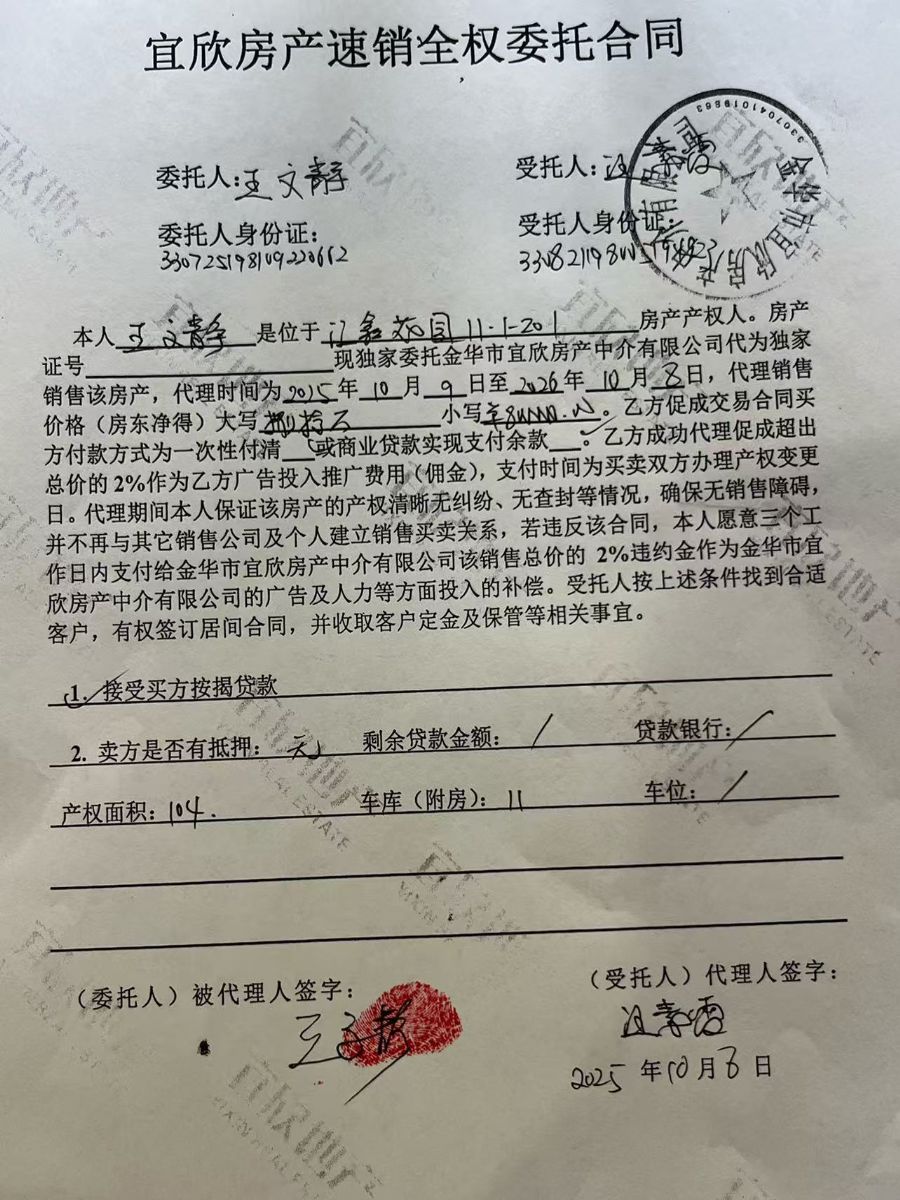 宜欣房产速销全权委托合同
委托人:王文静 受托人:汪素霞
委托人身份证: 受托人身份证:
330725198109220662
本人 王文静 是位于 江 苑 11-1-201 房产产权人。房产
证号 现独家委托金华市宜欣房产中介有限公司代为独家
销售该房产，代理时间为2025年10月9日至2026年10月8日，代理销售
价格（房东净得）大写 捌拾万 小写 。乙方促成交易合同买
方付款方式为一次性付清 或商业贷款实现支付余款 。乙方成功代理促成超出
总价的2%作为乙方广告投入推广费用（佣金），支付时间为买卖双方办理产权变更
日。代理期间本人保证该房产的产权清晰无纠纷、无查封等情况，确保无销售障碍，
并不再与其它销售公司及个人建立销售买卖关系，若违反该合同，本人愿意三个工
作日内支付给金华市宜欣房产中介有限公司该销售总价的 2%违约金作为金华市宜
欣房产中介有限公司的广告及人力等方面投入的补偿。受托人按上述条件找到合适
客户，有权签订居间合同，并收取客户定金及保管等相关事宜。
1. 接受买方按揭贷款
2. 卖方是否有抵押：无 剩余贷款金额： / 贷款银行：/
产权面积：104. 车库（附房）：11 车位：/
（委托人）被代理人签字： （受托人）代理人签字：
王文静 汪素霞
2025 年10月8日
金华市宜欣房产中介有限公司
3307041019863
宜欣地产
YIXIN REAL ESTATE